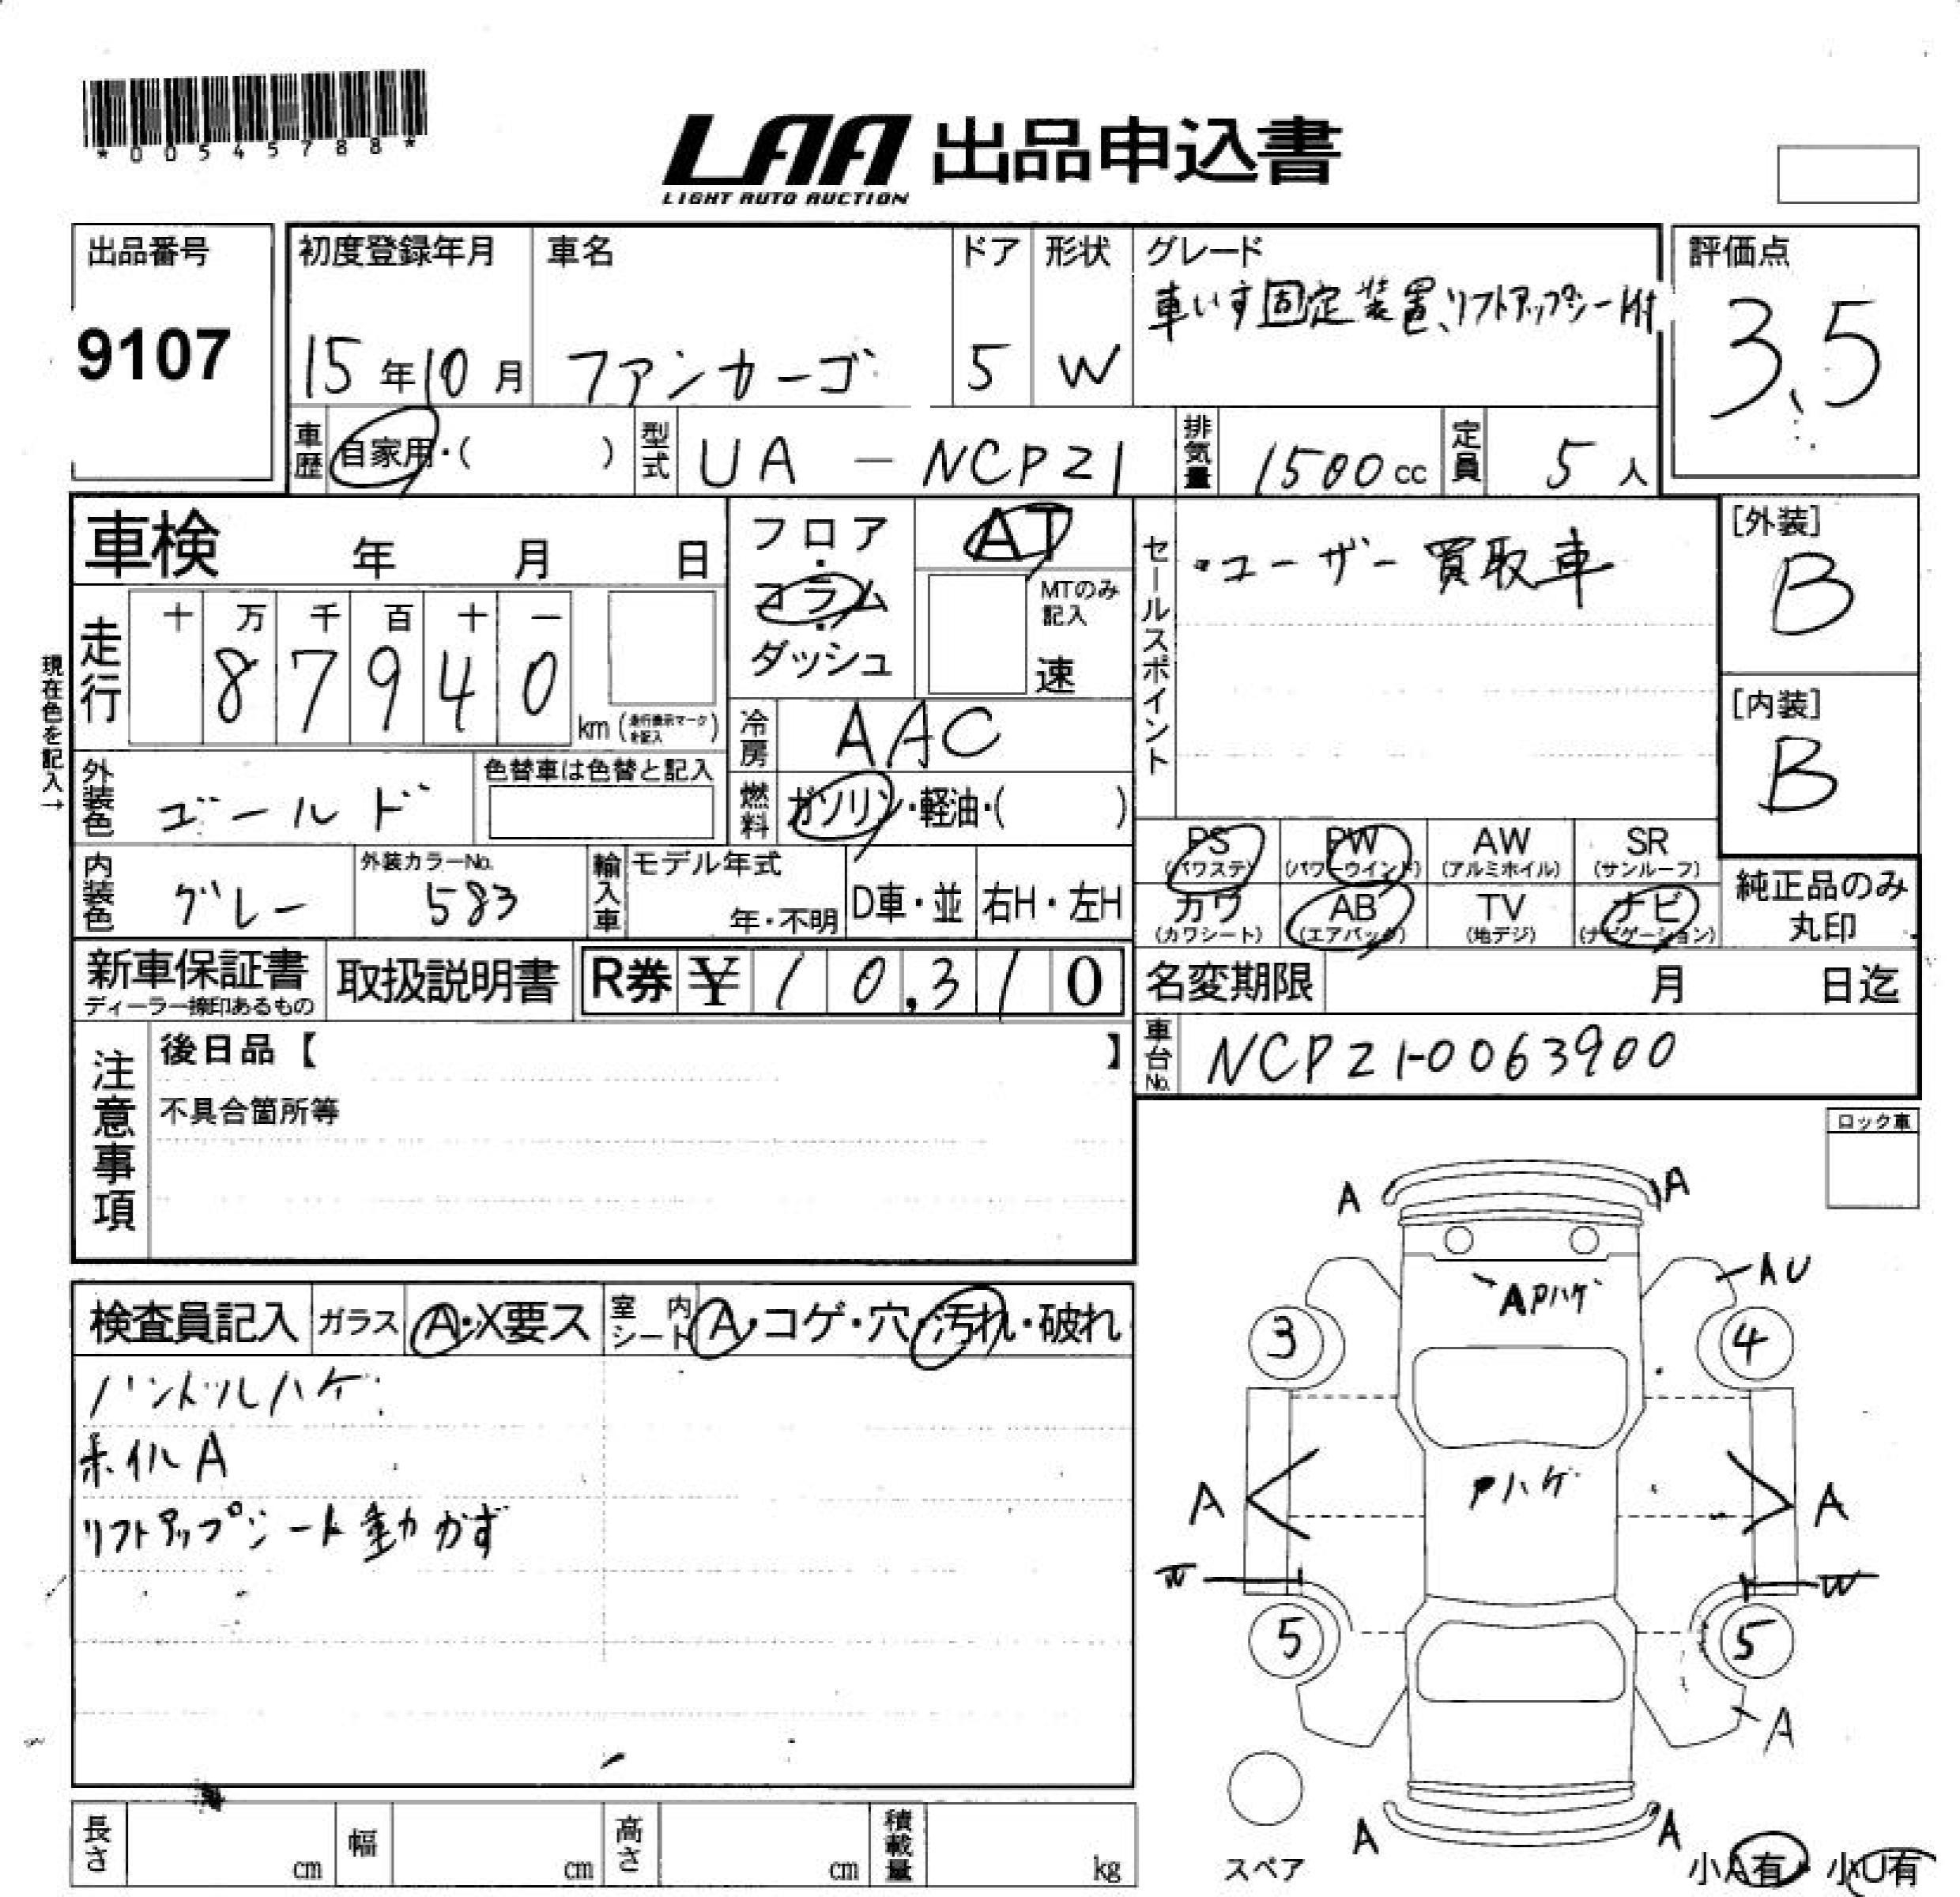 *00545788*
LAA 出品申込書
LIGHT AUTO AUCTION
出品番号
9107
初度登録年月
15年10月
車名
ファンカーゴ
ドア
5
形状
W
グレード
車いす固定装置、リフトアップシート付
評価点
3.5
車歴
自家用・( )
型式
UA - NCP21
排気量
1500cc
定員
5人
車検 年 月 日
フロア・コラム・ダッシュ
AT
MTのみ記入
速
セールスポイント
・ユーザー買取車
[外装]
B
[内装]
B
現在色を記入→
走行
十 万 千 百 十 一
87940
km(走行表示マークを記入)
冷房
AAC
外装色
ゴールド
色替車は色替と記入
燃料
ガソリン・軽油・( )
PS (パワステ)
PW (パワーウインド)
AW (アルミホイル)
SR (サンルーフ)
カワ (カワシート)
AB (エアバック)
TV (地デジ)
ナビ (ナビゲーション)
純正品のみ丸印
内装色
グレー
外装カラーNo.
583
輸入車
モデル年式
年・不明
D車・並
右H・左H
新車保証書
ディーラー捺印あるもの
取扱説明書
R券 ¥10,310
名変期限 月 日迄
車台No.
NCP21-0063900
注意事項
後日品【 】
不具合箇所等
ロック車
検査員記入
ガラス
A・X要ス
室内シート
A・コゲ・穴・汚れ・破れ
ハンドルハゲ
ホイルA
リフトアップシート動かず
A
A
AU
APハゲ
3
4
Pハゲ
A
A
W
W
5
5
A
A
A
スペア
小A有・小U有
長さ cm
幅 cm
高さ cm
積載量 kg